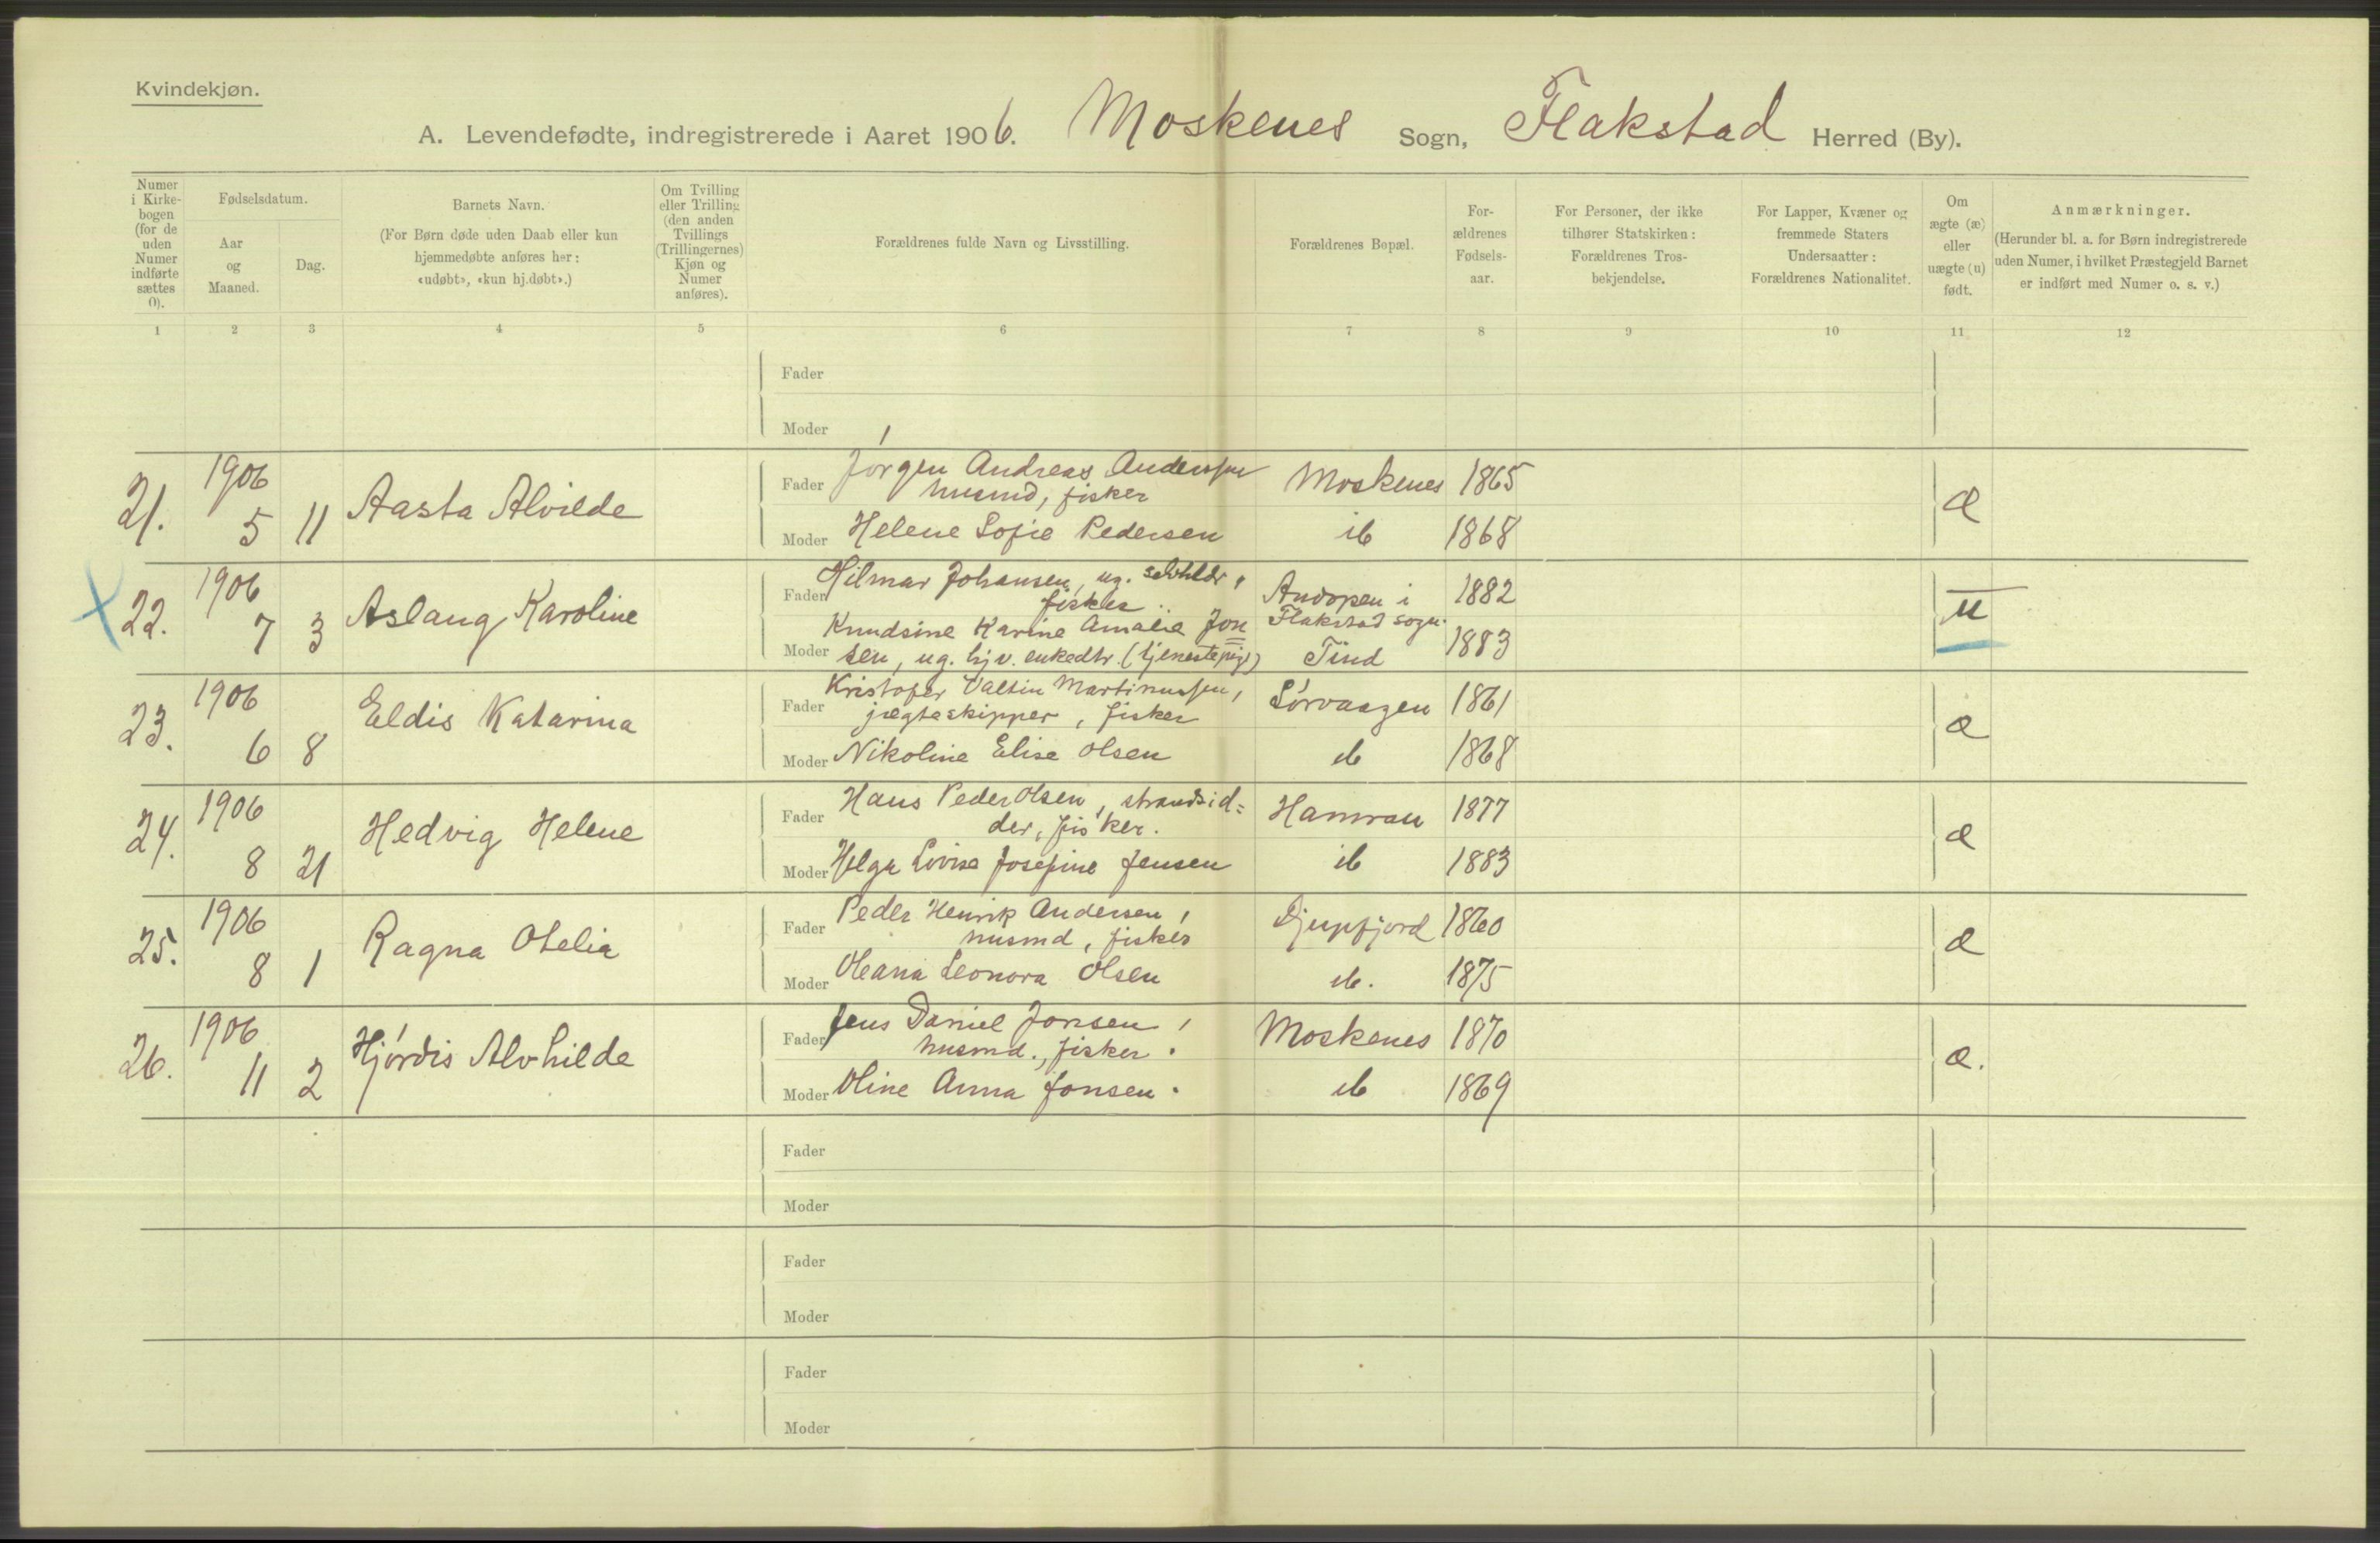 Kvindekjøn.
A. Levendefødte, indregistrerede i Aaret 1906. Moskenes Sogn, Flakstad Herred (By).
Numer i Kirkebogen (for de uden Numer indførte sættes 0).
Fødselsdatum.
Aar og Maaned.
Dag.
Barnets Navn.
(For Børn døde uden Daab eller kun hjemmedøbte anføres her: «udøbt», «kun hj.døbt».)
Om Tvilling eller Trilling (den anden Tvillings (Trillingernes) Kjøn og Numer anføres).
Forældrenes fulde Navn og Livsstilling.
Forældrenes Bopæl.
Forældrenes Fødselsaar.
For Personer, der ikke tilhører Statskirken: Forældrenes Trosbekjendelse.
For Lapper, Kvæner og fremmede Staters Undersaatter: Forældrenes Nationalitet.
Om ægte (æ) eller uægte (u) født.
Anmærkninger.
(Herunder bl. a. for Børn indregistrerede uden Numer, i hvilket Præstegjeld Barnet er indført med Numer o. s. v.)
1 2 3 4 5 6 7 8 9 10 11 12
Fader
Moder
21. 1906 5 11 Aasta Alvilde
Fader Jørgen Andreas Anderssen Moskenes 1865 æ
husmd, fisker
Moder Helene Sofie Pedersen ib 1868
22. 1906 7 3 Aslaug Karoline
Fader Hilmar Johansen, ug. selvhldr, Andopen i 1882 u
fisker Flakstad sogn.
Moder Knudsine Karine Amalie Jon=
sen, ug. hjv. enkedtr. (tjenestepige) Tind 1883
23. 1906 6 8 Eldis Katarina
Fader Kristofer Valtin Martinussen, Sørvaagen 1861 æ
jægteskipper, fisker
Moder Nikoline Elise Olsen ib 1868
24. 1906 8 21 Hedvig Helene
Fader Hans Peder Olsen, strandsid= Hamran 1877 æ
der, fisker.
Moder Helga Lovise Josefine Jensen ib 1883
25. 1906 8 1 Ragna Otelia
Fader Peder Henrik Andersen, Djupfjord 1860 æ
husmd, fisker
Moder Oleana Leonora Olsen ib. 1875
26. 1906 11 2 Hjørdis Alvhilde
Fader Jens Daniel Jonsen, Moskenes 1870 æ.
husmd., fisker.
Moder Oline Anna Jonsen. ib 1869
Fader
Moder
Fader
Moder
Fader
Moder